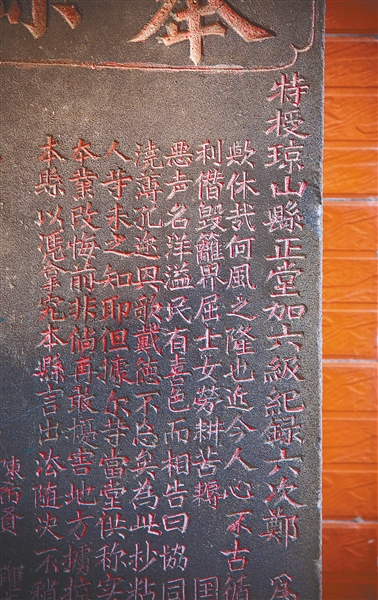 奉
特授琼山縣正堂加六級紀録六次鄭 為
歟休哉何風之隆也近今人心不古循
利僭毀離界屈士女勞耕苦耨
悪声名洋溢民有喜色而相告曰協同
澆薄迩興歌戴徳不忘矣為此抄粘
人等未之知耶但據尔等當堂供称
本業改悔前非倘再敢擾害地方擄
本縣以憑拿究本縣言出法随决不稍
陳雨